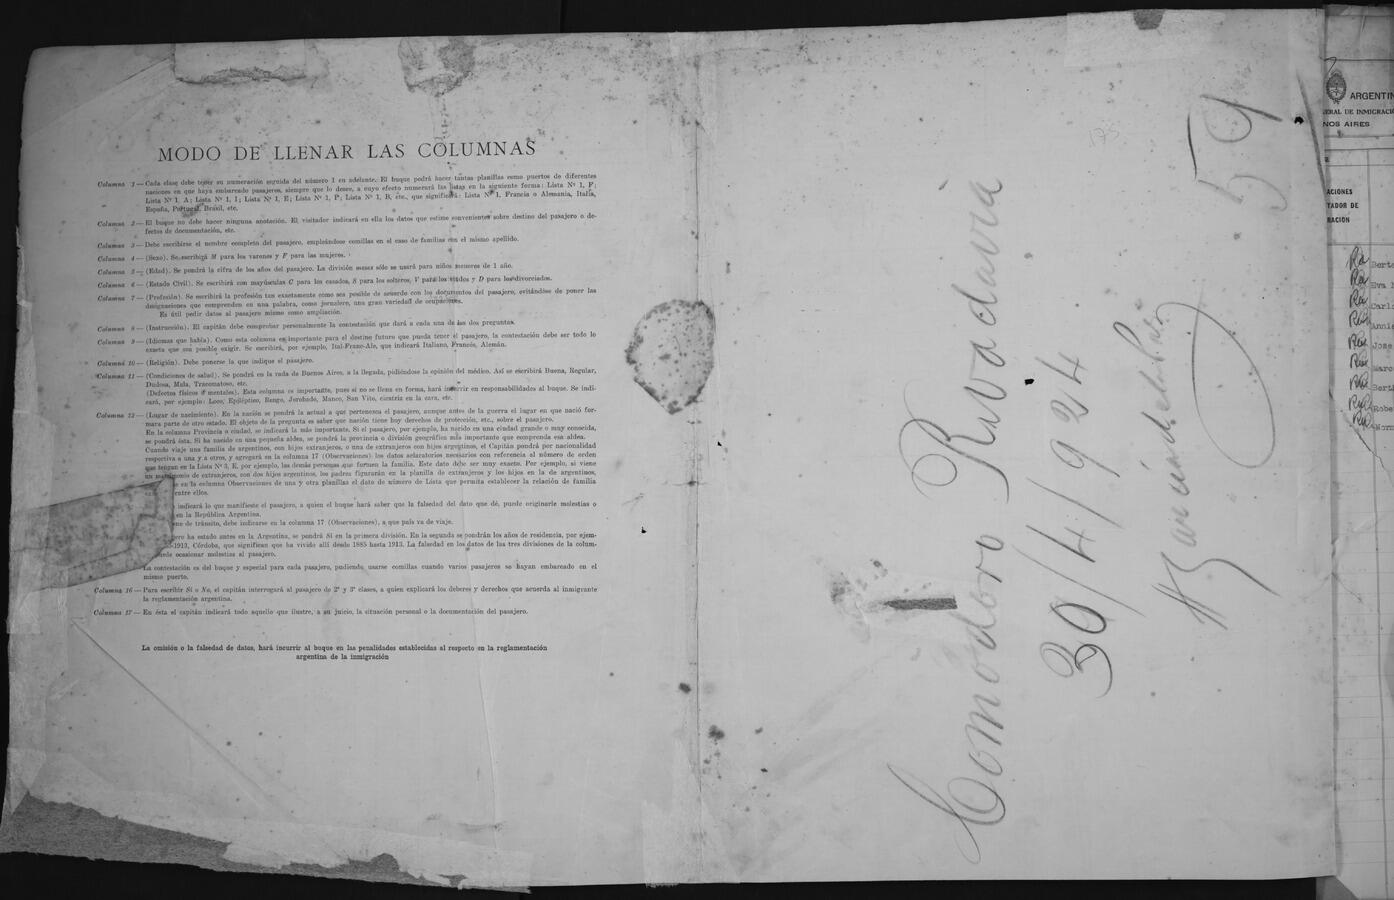 MODO DE LLENAR LAS COLUMNAS
Columna 1 — Cada clase debe tener su numeración seguida del número 1 en adelante. El buque podrá hacer tantas planillas como puertos de diferentes
naciones en que haya embarcado pasajeros, siempre que lo desee, a cuyo efecto numerará las listas en la siguiente forma: Lista Nº 1, F;
Lista Nº 1, A; Lista Nº 1, I; Lista Nº 1, E; Lista Nº 1, P; Lista Nº 1, B, etc., que significará: Lista Nº 1, Francia o Alemania, Italia,
España, Portugal, Brasil, etc.
Columna 2 — El buque no debe hacer ninguna anotación. El visitador indicará en ella los datos que estime convenientes sobre destino del pasajero o de-
fectos de documentación, etc.
Columna 3 — Debe escribirse el nombre completo del pasajero, empleándose comillas en el caso de familias con el mismo apellido.
Columna 4 — (Sexo). Se escribirá M para los varones y F para las mujeres.
Columna 5 — (Edad). Se pondrá la cifra de los años del pasajero. La división meses sólo se usará para niños menores de 1 año.
Columna 6 — (Estado Civil). Se escribirá con mayúsculas C para los casados, S para los solteros, V para los viudos y D para los divorciados.
Columna 7 — (Profesión). Se escribirá la profesión tan exactamente como sea posible de acuerdo con los documentos del pasajero, evitándose de poner las
designaciones que comprenden en una palabra, como jornalero, una gran variedad de ocupaciones.
Es útil pedir datos al pasajero mismo como ampliación.
Columna 8 — (Instrucción). El capitán debe comprobar personalmente la contestación que dará a cada una de las dos preguntas.
Columna 9 — (Idiomas que habla). Como esta columna es importante para el destino futuro que pueda tener el pasajero, la contestación debe ser todo lo
exacta que sea posible exigir. Se escribirá, por ejemplo, Ital-Franc-Ale, que indicará Italiano, Francés, Alemán.
Columna 10 — (Religión). Debe ponerse la que indique el pasajero.
Columna 11 — (Condiciones de salud). Se pondrá en la rada de Buenos Aires, a la llegada, pidiéndose la opinión del médico. Así se escribirá Buena, Regular,
Dudosa, Mala, Tracomatoso, etc.
(Defectos físicos o mentales). Esta columna es importante, pues si no se llena en forma, hará incurrir en responsabilidades al buque. Se indi-
cará, por ejemplo: Loco, Epiléptico, Rengo, Jorobado, Manco, San Vito, cicatriz en la cara, etc.
Columna 12 — (Lugar de nacimiento). En la nación se pondrá la actual a que pertenezca el pasajero, aunque antes de la guerra el lugar en que nació for-
mara parte de otro estado. El objeto de la pregunta es saber que nación tiene hoy derechos de protección, etc., sobre el pasajero.
En la columna Provincia o ciudad, se indicará la más importante. Si el pasajero, por ejemplo, ha nacido en una ciudad grande o muy conocida,
se pondrá ésta. Si ha nacido en una pequeña aldea, se pondrá la provincia o división geográfica más importante que comprenda esa aldea.
Cuando viaje una familia de argentinos, con hijos extranjeros, o una de extranjeros con hijos argentinos, el Capitán pondrá por nacionalidad
respectiva a una y a otros, y agregará en la columna 17 (Observaciones): los datos aclaratorios necesarios con referencia al número de orden
que tengan en la Lista Nº 3, E, por ejemplo, las demás personas que formen la familia. Este dato debe ser muy exacto. Por ejemplo, si viene
un matrimonio de extranjeros, con dos hijos argentinos, los padres figurarán en la planilla de extranjeros y los hijos en la de argentinos,
en la columna Observaciones de una y otra planillas el dato de número de Lista que permita establecer la relación de familia
entre ellos.
indicará lo que manifieste el pasajero, a quien el buque hará saber que la falsedad del dato que dé, puede originarle molestias o
en la República Argentina.
ene de tránsito, debe indicarse en la columna 17 (Observaciones), a que país va de viaje.
ero ha estado antes en la Argentina, se pondrá Si en la primera división. En la segunda se pondrán los años de residencia, por ejem-
-1913, Córdoba, que significan que ha vivido allí desde 1885 hasta 1913. La falsedad en los datos de las tres divisiones de la colum-
puede ocasionar molestias al pasajero.
La contestación es del buque y especial para cada pasajero, pudiendo usarse comillas cuando varios pasajeros se hayan embarcado en el
mismo puerto.
Columna 16 — Para escribir Si o No, el capitán interrogará al pasajero de 2ª y 3ª clases, a quien explicará los deberes y derechos que acuerda al inmigrante
la reglamentación argentina.
Columna 17 — En ésta el capitán indicará todo aquello que ilustre, a su juicio, la situación personal o la documentación del pasajero.
La omisión o la falsedad de datos, hará incurrir al buque en las penalidades establecidas al respecto en la reglamentación
argentina de la inmigración
Comodoro Rivadavia
30/4/924
59
ARGENTIN
ERAL DE INMIGRACI
NOS AIRES
ACIONES
TADOR DE
RACIÓN
Berta
Eva
Carl
Annie
Jose
Marc
Bert
Robe
Norm